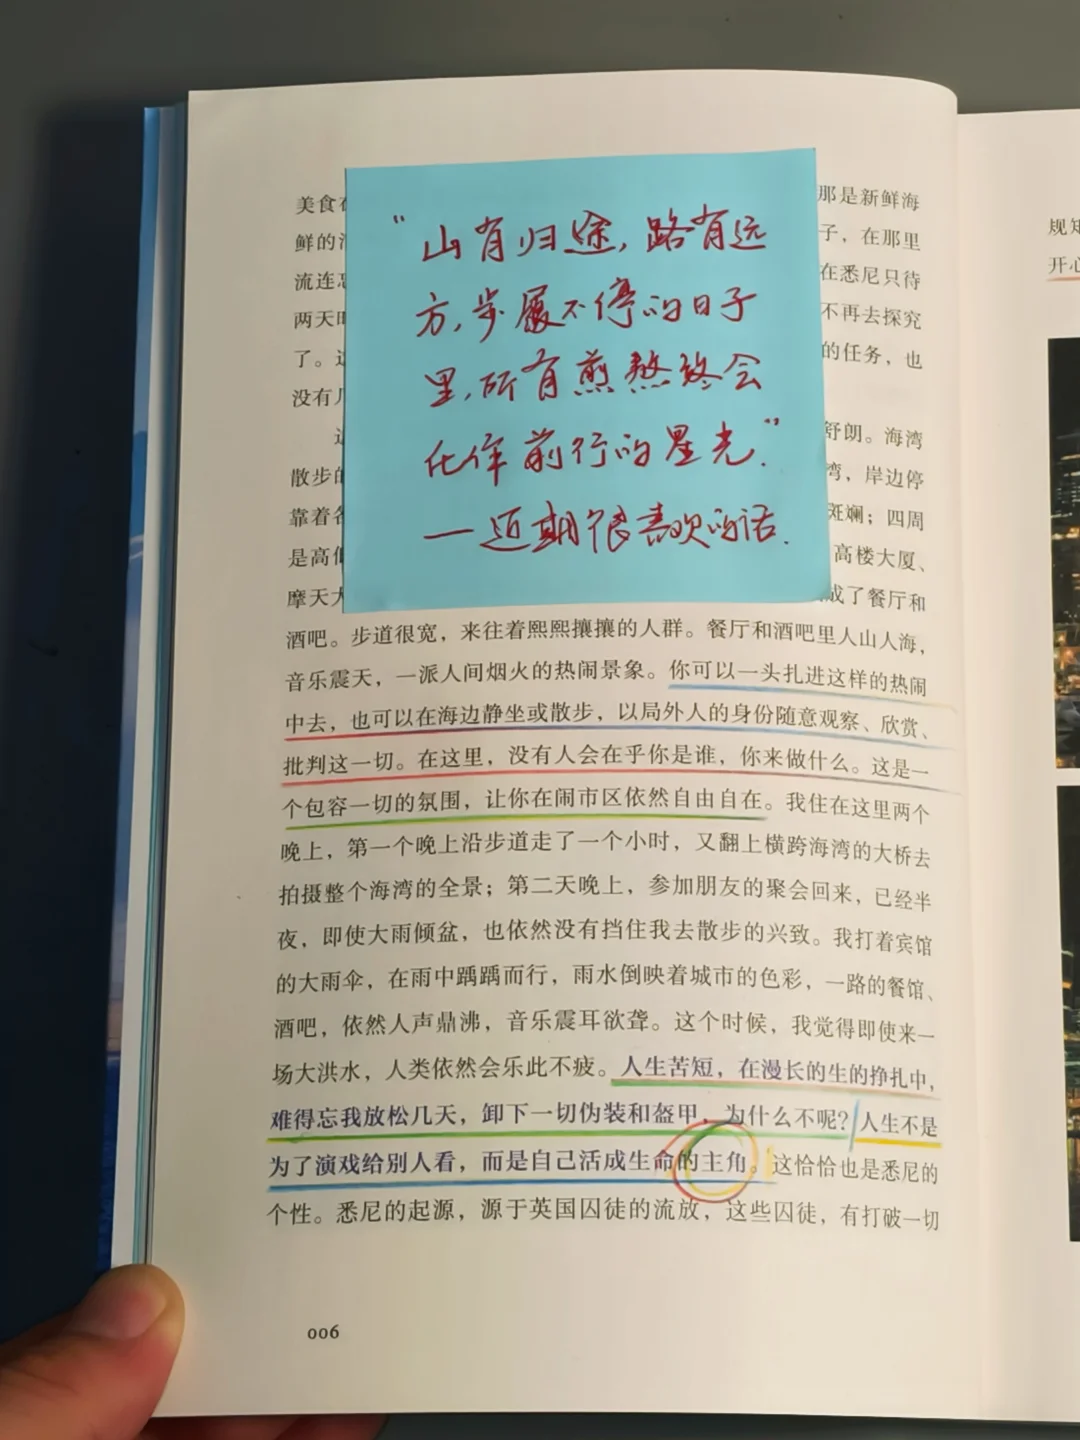 美食
那是新鲜海
鲜的
子，在那里
流连
在悉尼只待
两天
不再去探究
了。
的任务，也
没有
“山有归途，路有远
方，步履不停的日子
里，所有煎熬终会
化作前行的星光。”
—近期很喜欢的话.
舒朗。海湾
散步的
湾，岸边停
靠着各
斑斓；四周
是高
高楼大厦、
摩天大
成了餐厅和
酒吧。步道很宽，来往着熙熙攘攘的人群。餐厅和酒吧里人山人海，
音乐震天，一派人间烟火的热闹景象。你可以一头扎进这样的热闹
中去，也可以在海边静坐或散步，以局外人的身份随意观察、欣赏、
批判这一切。在这里，没有人会在乎你是谁，你来做什么。这是一
个包容一切的氛围，让你在闹市区依然自由自在。我住在这里两个
晚上，第一个晚上沿步道走了一个小时，又翻上横跨海湾的大桥去
拍摄整个海湾的全景；第二天晚上，参加朋友的聚会回来，已经半
夜，即使大雨倾盆，也依然没有挡住我去散步的兴致。我打着宾馆
的大雨伞，在雨中踽踽而行，雨水倒映着城市的色彩，一路的餐馆、
酒吧，依然人声鼎沸，音乐震耳欲聋。这个时候，我觉得即使来一
场大洪水，人类依然会乐此不疲。人生苦短，在漫长的生的挣扎中，
难得忘我放松几天，卸下一切伪装和盔甲，为什么不呢？人生不是
为了演戏给别人看，而是自己活成生命的主角。这恰恰也是悉尼的
个性。悉尼的起源，源于英国囚徒的流放，这些囚徒，有打破一切
006
规矩
开心